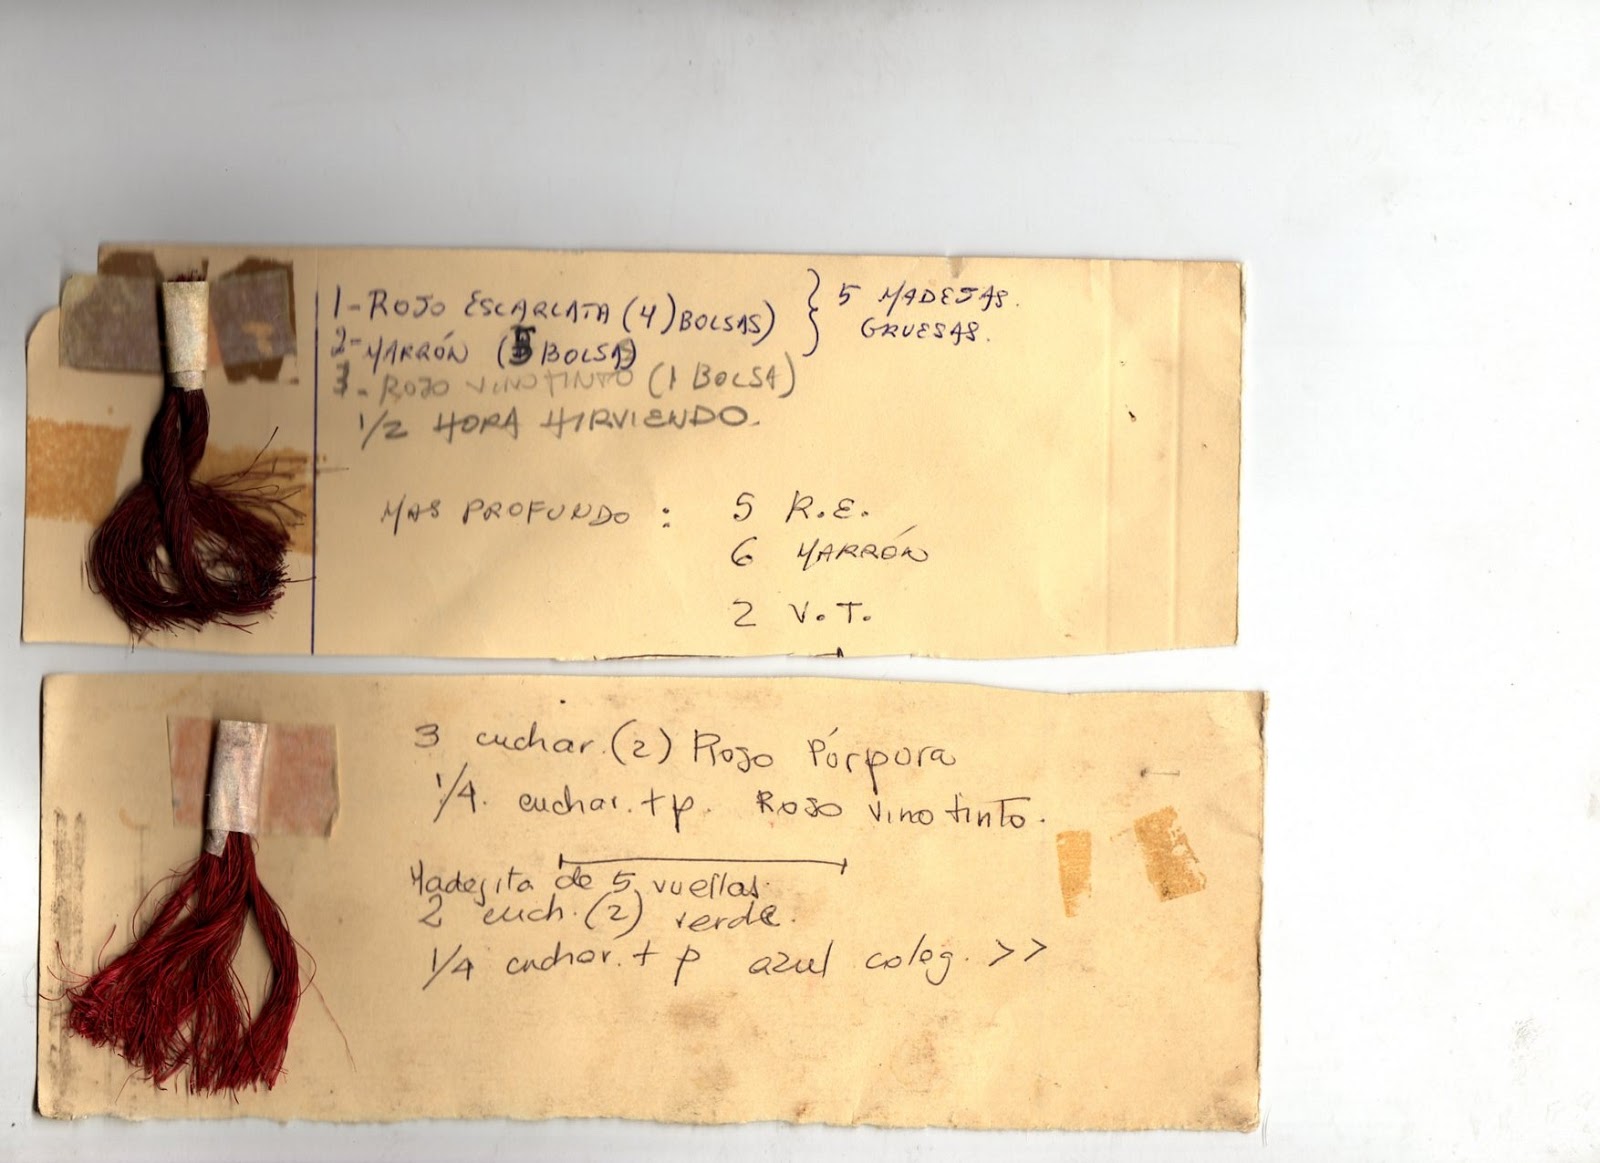 1- ROJO ESCARLATA (4) BOLSAS) } 5 MADEJAS.
GRUESAS.
2- MARRÓN (5 BOLSAS)
3- ROJO VINOTINTO (1 BOLSA)
1/2 HORA HIRVIENDO.
MAS PROFUNDO : 5 R.E.
6 MARRÓN
2 V.T.
3 cuchar. (2) Rojo Púrpura
1/4. cuchar. + p. Rojo vino tinto.
Madejita de 5 vueltas.
2 cuch. (2) verde.
1/4 cuchar. + p azul coleg. >>